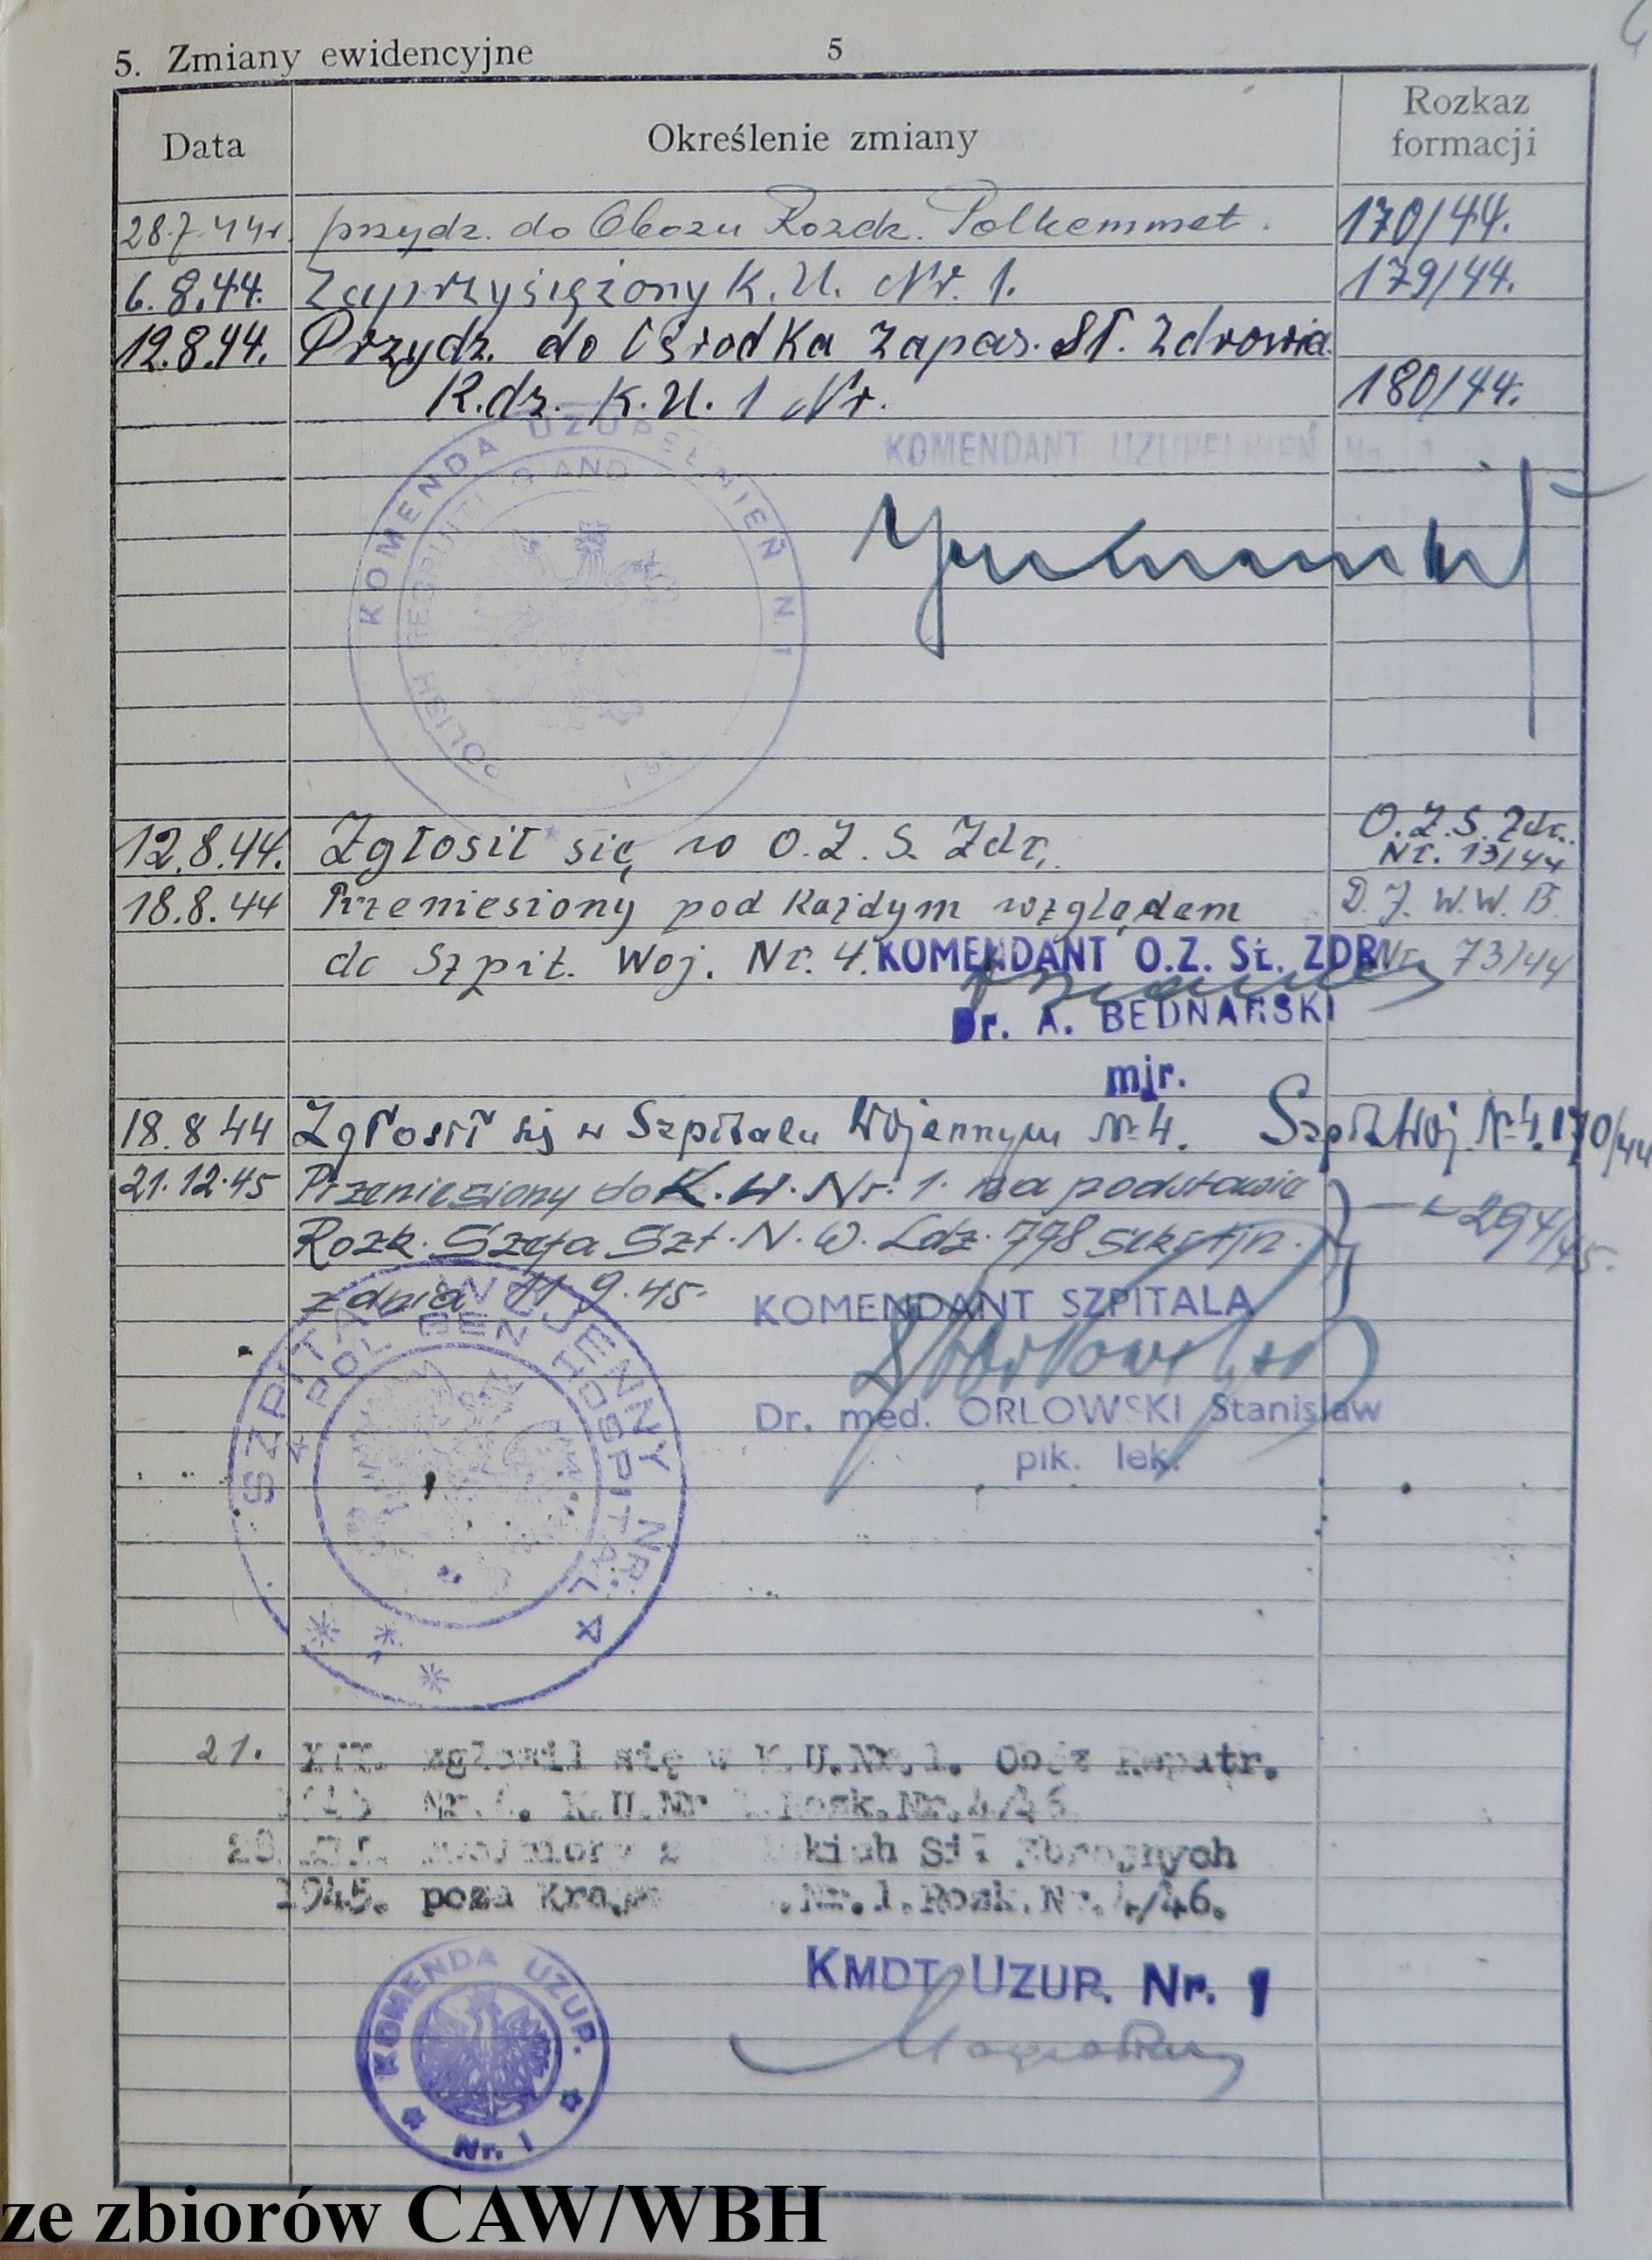 5. Zmiany ewidencyjne
5
Data
Określenie zmiany
Rozkaz
formacji
28.7.44r. przydz. do Obozu Rozdz. Polkemmet. 170/44.
6.8.44. Zaprzysiężony K.U. Nr. 1. 179/44.
12.8.44. Przydz. do Ośrodka Zapas. Sł. Zdrowia
R.dz. K.U. 1 Nr. 180/44.
KOMENDA UZUPEŁNIEŃ N. 1
POLISH REGRUTI G AND
KOMENDANT UZUPEŁNIEŃ Nr. 1
12.8.44. Zgłosił się w O.Z.S. Zdr. O.Z.S. Zdr.
Nr. 13/44
18.8.44 Przeniesiony pod każdym względem D.J.W.W.B.
do Szpit. Woj. Nr. 4. Nr. 73/44
KOMENDANT O.Z. SŁ. ZDR
Dr. A. BEDNARSKI
mjr.
18.8 44 Zgłosił się w Szpitalu Wojennym Nr 4. Szpit Woj. Nr 4. 170/44
21.12.45 Przeniesiony do K.U. Nr. 1. na podstawie
Rozk. Szefa Szt. N.W. Ldz. 778 294/45.
z dnia 11 9.45.
SZPITAL WOJENNY NR. 4
4 POL GEN HOSPITAL
KOMENDANT SZPITALA
Dr. med. ORLOWSKI Stanisław
płk. lek.
21. XII. zgłosił się w K.U.Nr.1. Obóz Repatr.
1945 K.U.Nr 1.Rozk.Nr.4/46
28 XII. kich Sił Zbrojnych
1945. poza Krajem .Nr.1.Rozk.Nr.4/46.
KMDT UZUP. Nr. 1
KOMENDA UZUP.
Nr. 1
ze zbiorów CAW/WBH